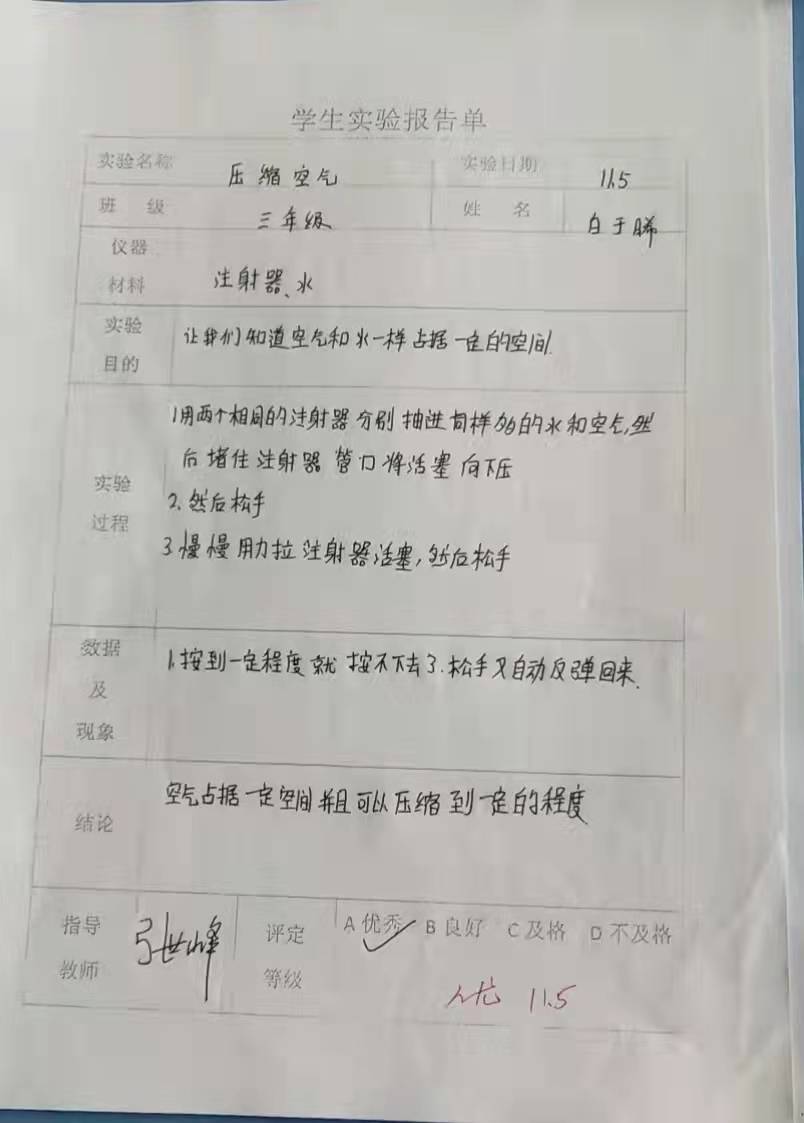 学生实验报告单
实验名称 压缩空气 实验日期 11.5
班 级 三年级 姓 名 白于睎
仪器
材料 注射器、水
实验
目的 让我们知道空气和水一样占据一定的空间.
实验
过程
1.用两个相同的注射器分别抽进同样多的水和空气,然
后堵住注射器管口将活塞向下压
2.然后松手
3.慢慢用力拉注射器活塞,然后松手
数据
及
现象
1.按到一定程度就按不下去了.松手又自动反弹回来.
结论
空气占据一定空间并且可以压缩到一定的程度
指导
教师 张世峰
评定
等级
A 优秀 B 良好 C 及格 D 不及格
优 11.5